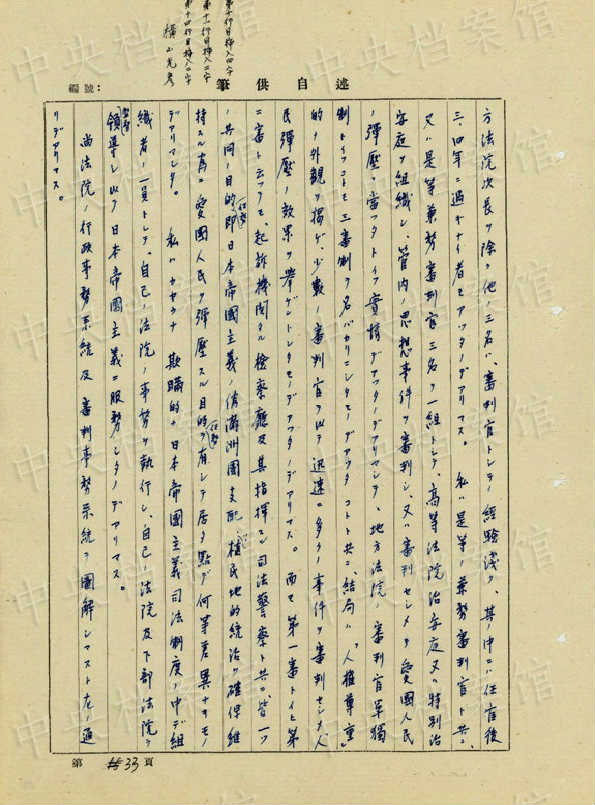 第十行目挿入四字
第十一行目挿入二字
第十四行目挿入二字
横山光彦
編號：
筆供自述
方法院次長ヲ除ク他ノ三名ハ、審判官トシテノ経験浅ク、其ノ中ニハ任官後
三、四年ニ過ギナイ者モアッタノデアリマス。 私ハ是等ノ兼務審判官ト共ニ、
又ハ是等兼務審判官三名ヲ一組トシテ、高等法院治安庭又ハ特別治
安庭ヲ組織シ、管内ノ思想事件ヲ審判シ、又ハ審判セシメテ愛國人民
ノ彈壓ニ當ッタトイフ實情デアッタノデアリマシテ、地方法院ノ審判官單獨
制トイフコトモ三審制ヲ名バカリニシタモノデアッタコトト共ニ、結局ハ「人權尊重」
的ナ外觀ヲ揚ゲ、少數ノ審判官ヲ以テ迅速ニ多クノ事件ヲ審判セシメ、人
民彈壓ノ效果ヲ擧ゲントシタモノデアッタノデアリマス。 而モ第一審トイヒ第
二審ト云ッテモ、起訴機関タル檢察廳及其指揮スル司法警察ト共ニ、皆一ツ
ノ共同ノ目的即日本帝國主義ノ僞滿洲國支配ノ植民地的統治ヲ確保維
持スル為ニ愛國人民ヲ彈壓スル目的ヲ有シテ居ル點デ何等差異ナキモノ
デアリマシタ。 私ハカカル 欺瞞的ナ日本帝國主義司法制度ノ中デ組
織者ノ一員トシテ、自己ノ法院ノ事務ヲ執行シ、自己ノ法院及下部法院ヲ
領導シ以テ日本帝國主義ニ服務シタノデアリマス。
尚法院ノ行政事務系統及審判事務系統ヲ圖解シマスト左ノ通
リデアリマス。
第 33 頁
中央档案馆